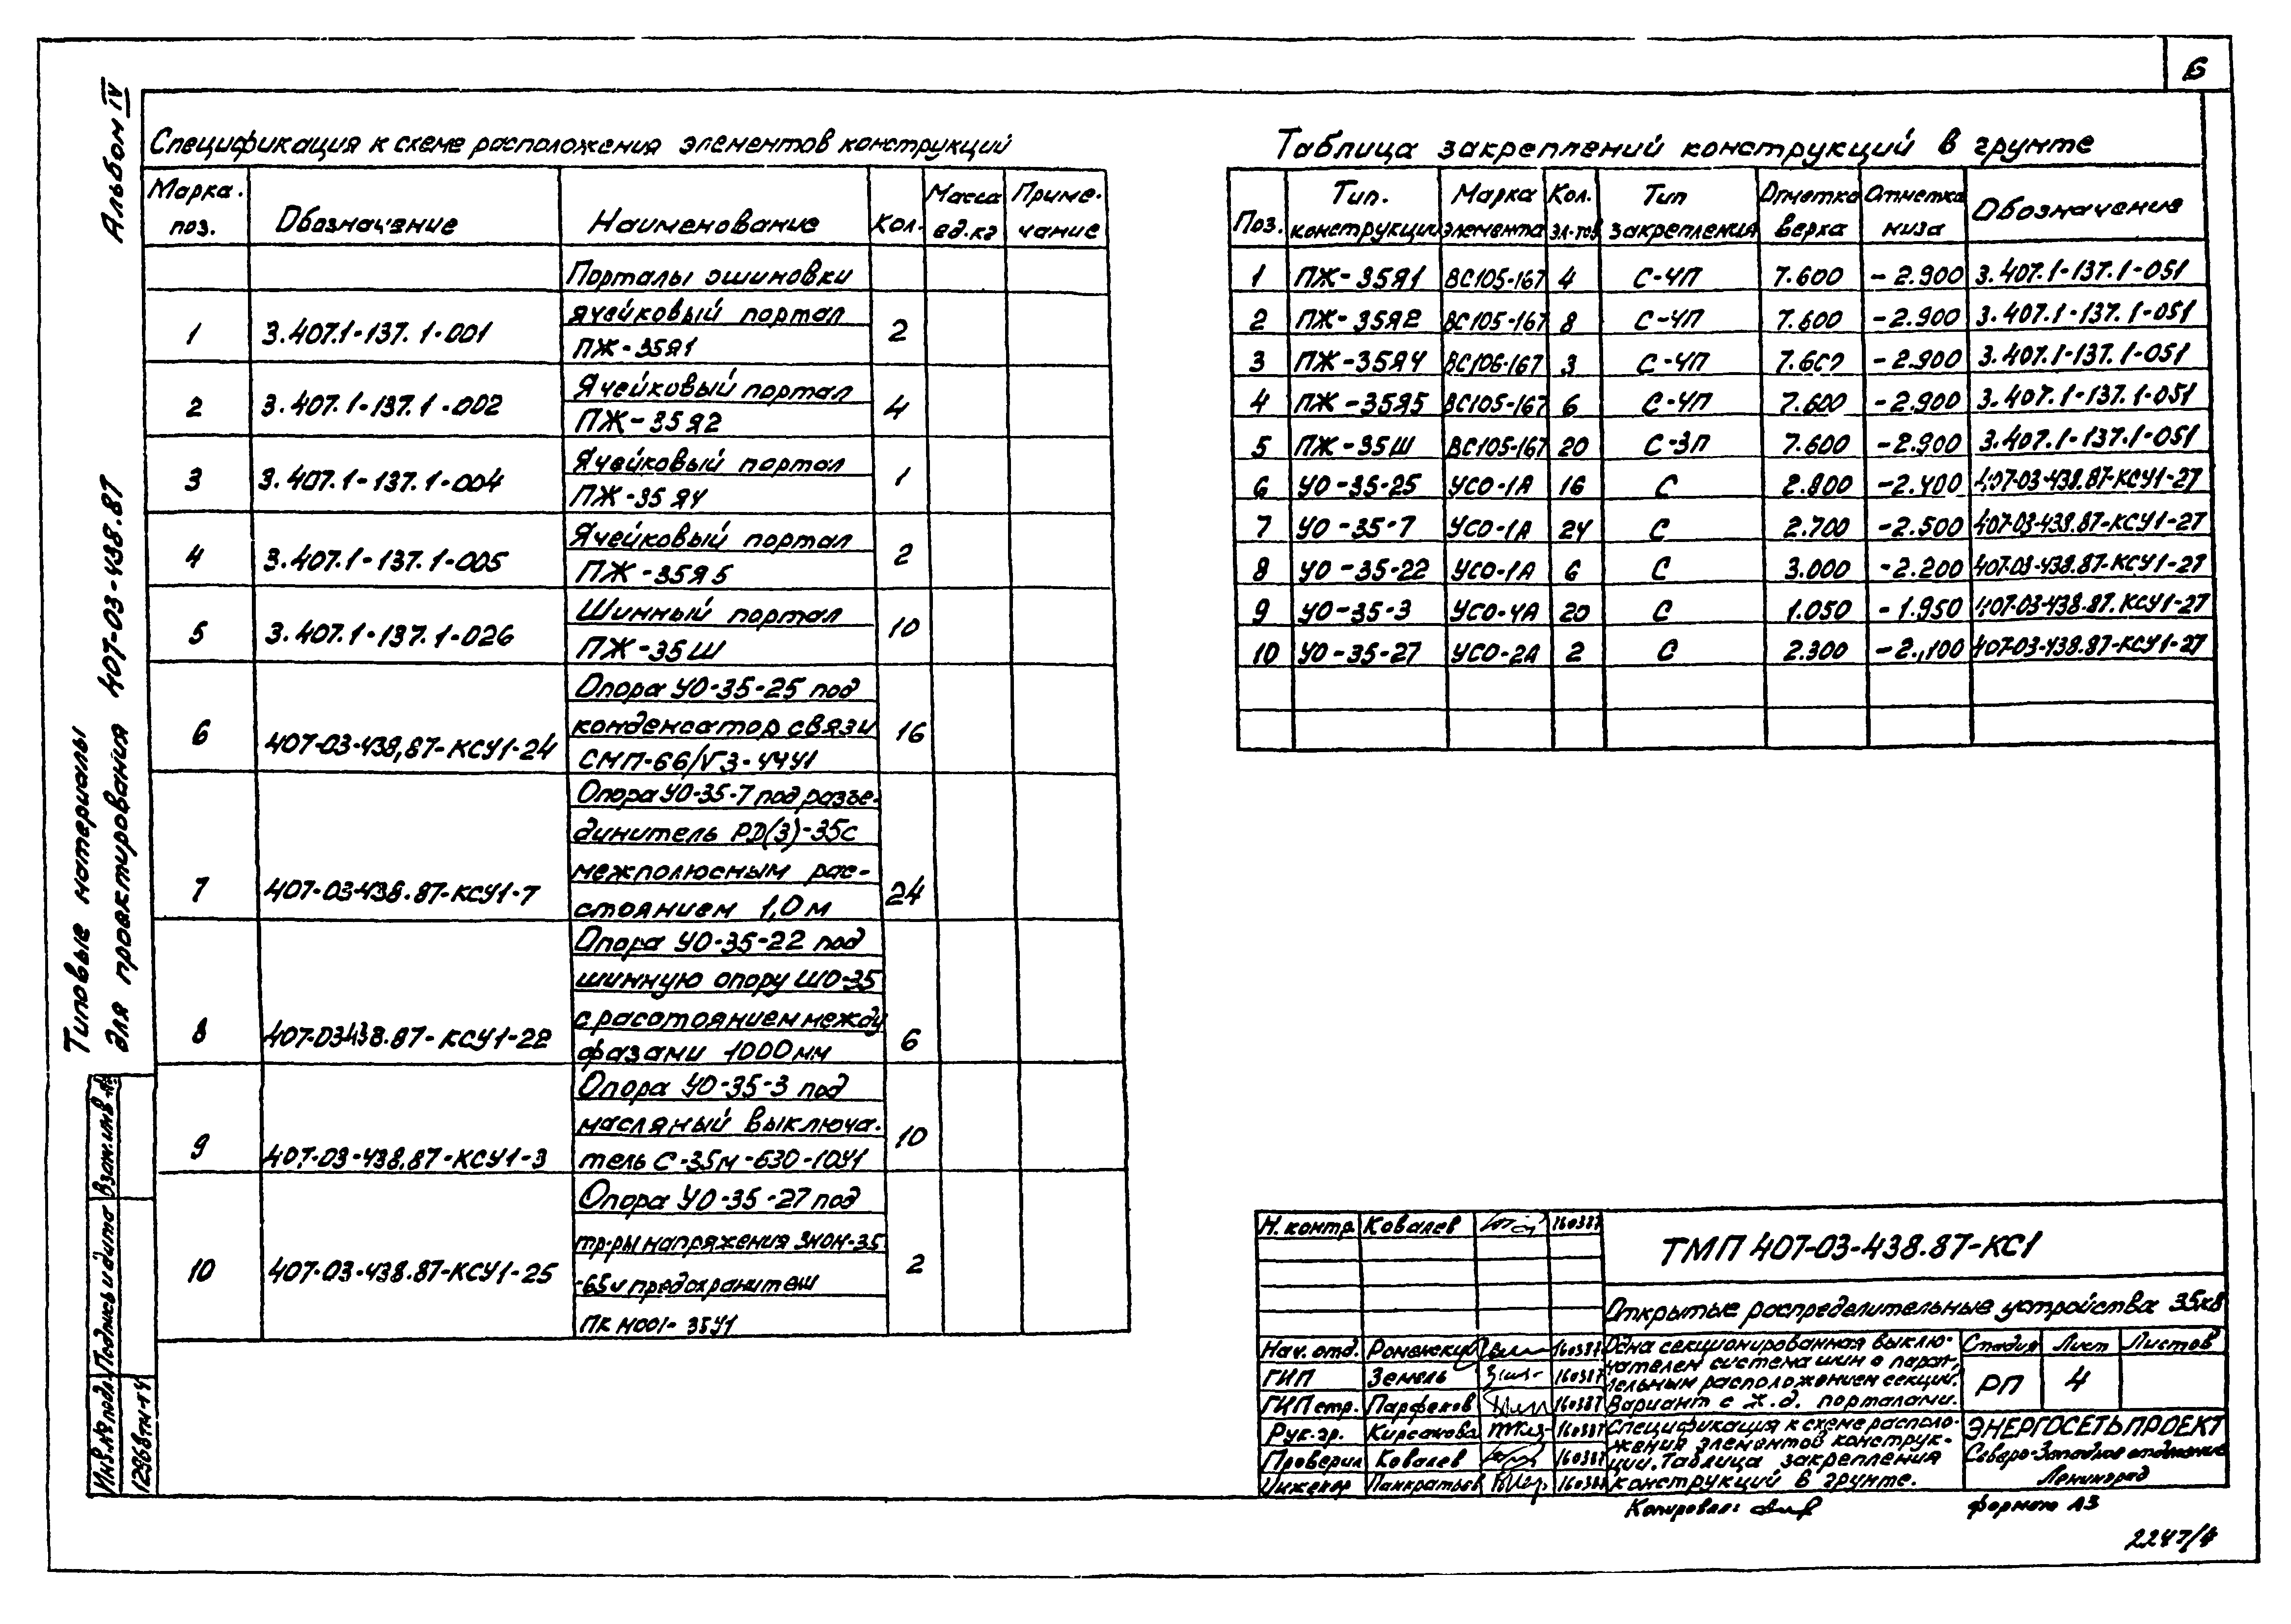 6
Альбом IV
Типовые материалы
для проектирования 407-03-438.87
Спецификация к схеме расположения элементов конструкций
Марка. поз. Обозначение Наименование Кол. Масса ед.кг Приме- чание
Порталы ошиновки
1 3.407.1-137.1-001 ячейковый портал 2
ПЖ-35Я1
2 3.407.1-137.1-002 Ячейковый портал 4
ПЖ-35Я2
3 3.407.1-137.1-004 Ячейковый портал 1
ПЖ-35Я4
4 3.407.1-137.1-005 Ячейковый портал 2
ПЖ-35Я5
5 3.407.1-137.1-026 Шинный портал 10
ПЖ-35Ш
Опора УО-35-25 под
6 407-03-438,87-КСУ1-24 конденсатор связи 16
СМП-66/√3-4,4У1
Опора УО-35-7 под разъе-
динитель РД(З)-35с
7 407-03-438.87-КСУ1-7 межполюсным рас- 24
стоянием 1,0 м
Опора УО-35-22 под
шинную опору ШО-35
8 407-03438.87-КСУ1-22 с расстоянием между 6
фазами 1000 мм
Опора УО-35-3 под
масляный выключа-
9 407-03-438.87-КСУ1-3 тель С-35м-630-10У1 10
Опора УО-35-27 под
тр-ры напряжения ЗНОН-35
10 407-03-438.87-КСУ1-25 -65и предохранители 2
ПК Н001-35У1
Таблица закреплений конструкций в грунте
Поз. Тип. конструкции Марка элемента Кол. эл-тов Тип закрепления Отметка верха Отметка низа Обозначение
1 ПЖ-35Я1 ВС105-167 4 С-4П 7.600 -2.900 3.407.1-137.1-051
2 ПЖ-35Я2 ВС105-167 8 С-4П 7.600 -2.900 3.407.1-137.1-051
3 ПЖ-35Я4 ВС106-167 3 С-4П 7.600 -2.900 3.407.1-137.1-051
4 ПЖ-35Я5 ВС105-167 6 С-4П 7.600 -2.900 3.407.1-137.1-051
5 ПЖ-35Ш ВС105-167 20 С-3П 7.600 -2.900 3.407.1-137.1-051
6 УО-35-25 УСО-1А 16 С 2.800 -2.400 407-03-438.87-КСУ1-27
7 УО-35-7 УСО-1А 24 С 2.700 -2.500 407-03-438.87-КСУ1-27
8 УО-35-22 УСО-1А 6 С 3.000 -2.200 407-03-438.87-КСУ1-27
9 УО-35-3 УСО-4А 20 С 1.050 -1.950 407-03-438.87.КСУ1-27
10 УО-35-27 УСО-2А 2 С 2.300 -2.,100 407-03-438.87-КСУ1-27
Н. контр. Ковалев 160387
ТМП 407-03-438.87-КС1
Открытые распределительные устройства 35кВ
Нач. отд. Роменский 160387
ГИП Земель 160387
ГИП стр. Парфенов 160387
Рук. гр. Кирсанова 160387
Проверил Ковалев 160387
Инженер Панкратьев 160387
Одна секционированная выклю-
чателем система шин с парал-
лельным расположением секций.
Вариант с ж.д. порталами.
Стадия Лист Листов
РП 4
Спецификация к схеме располо-
жения элементов конструк-
ций. Таблица закрепления
конструкций в грунте.
ЭНЕРГОСЕТЬПРОЕКТ
Северо-Западное отделение
Ленинград
Копировал:
формат А3
2247/4
Взам.инв.№
Подпись и дата
Инв.№подл.
12968тм-т4